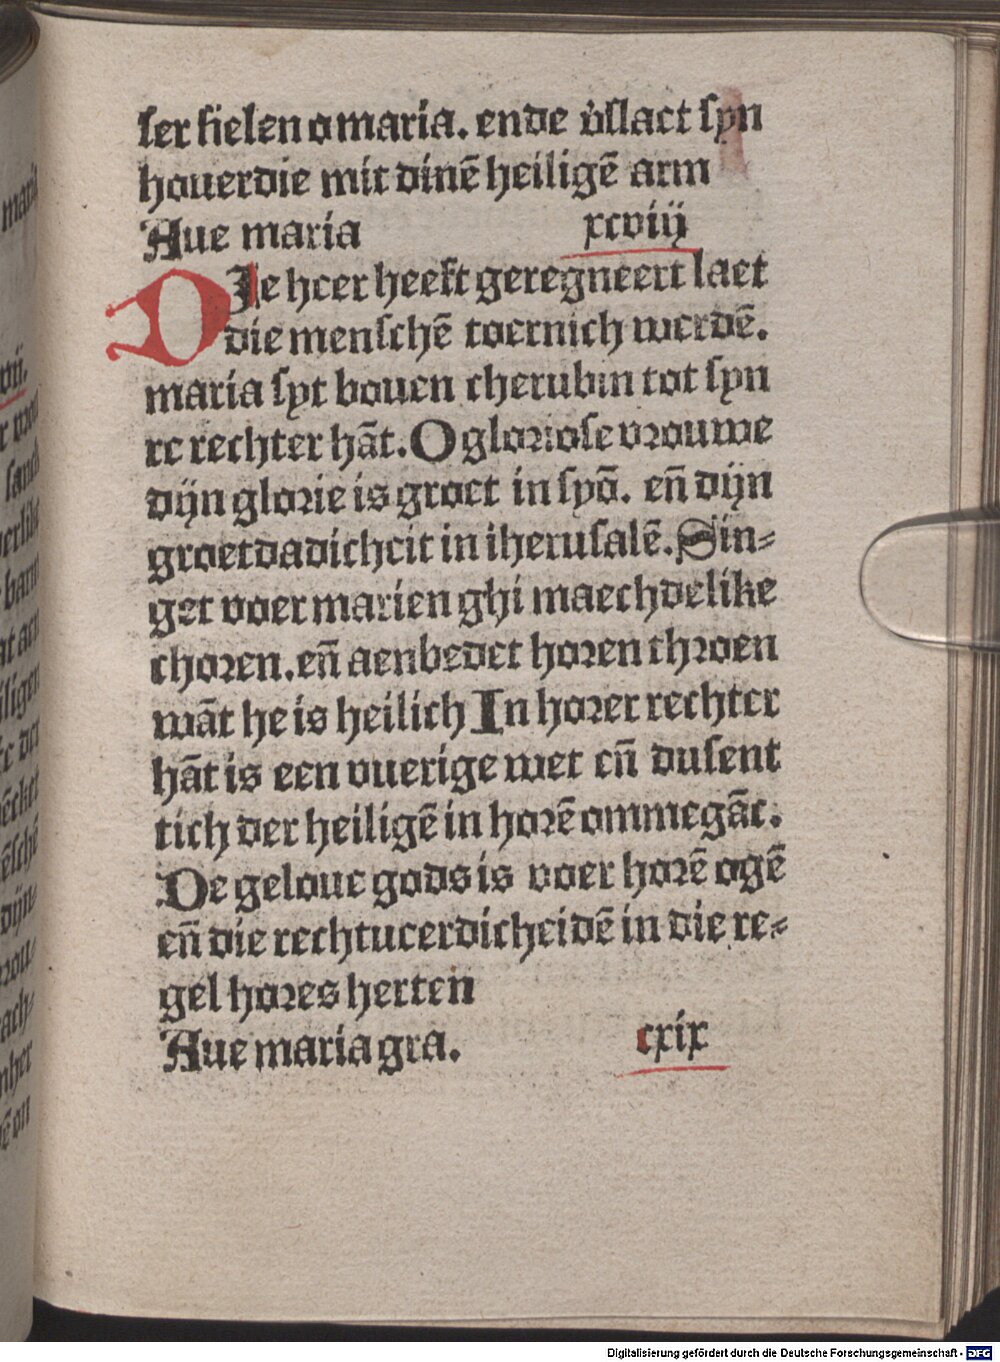 ser sielen o maria. ende v̉slact syn
houerdie mit dinē heiligē arm
Aue maria xcviij
DIe heer heeft geregneert laet
die menschē toernich werdē.
maria syt bouen cherubin tot syn
re rechter hāt. O gloriose vrouwe
dijn glorie is groet in syō. eñ dijn
groetdadicheit in iherusalē. Sin-
get voer marien ghi maechdelike
choren. eñ aenbedet horen throen
wāt he is heilich In horer rechter
hāt is een vuerige wet eñ dusent
tich der heiligē in horē ommegāc.
De geloue gods is voer horē ogē
eñ die rechtuerdicheidē in die re-
gel hores herten
Aue maria gra. cxix
Digitalisierung gefördert durch die Deutsche Forschungsgemeinschaft - DFG